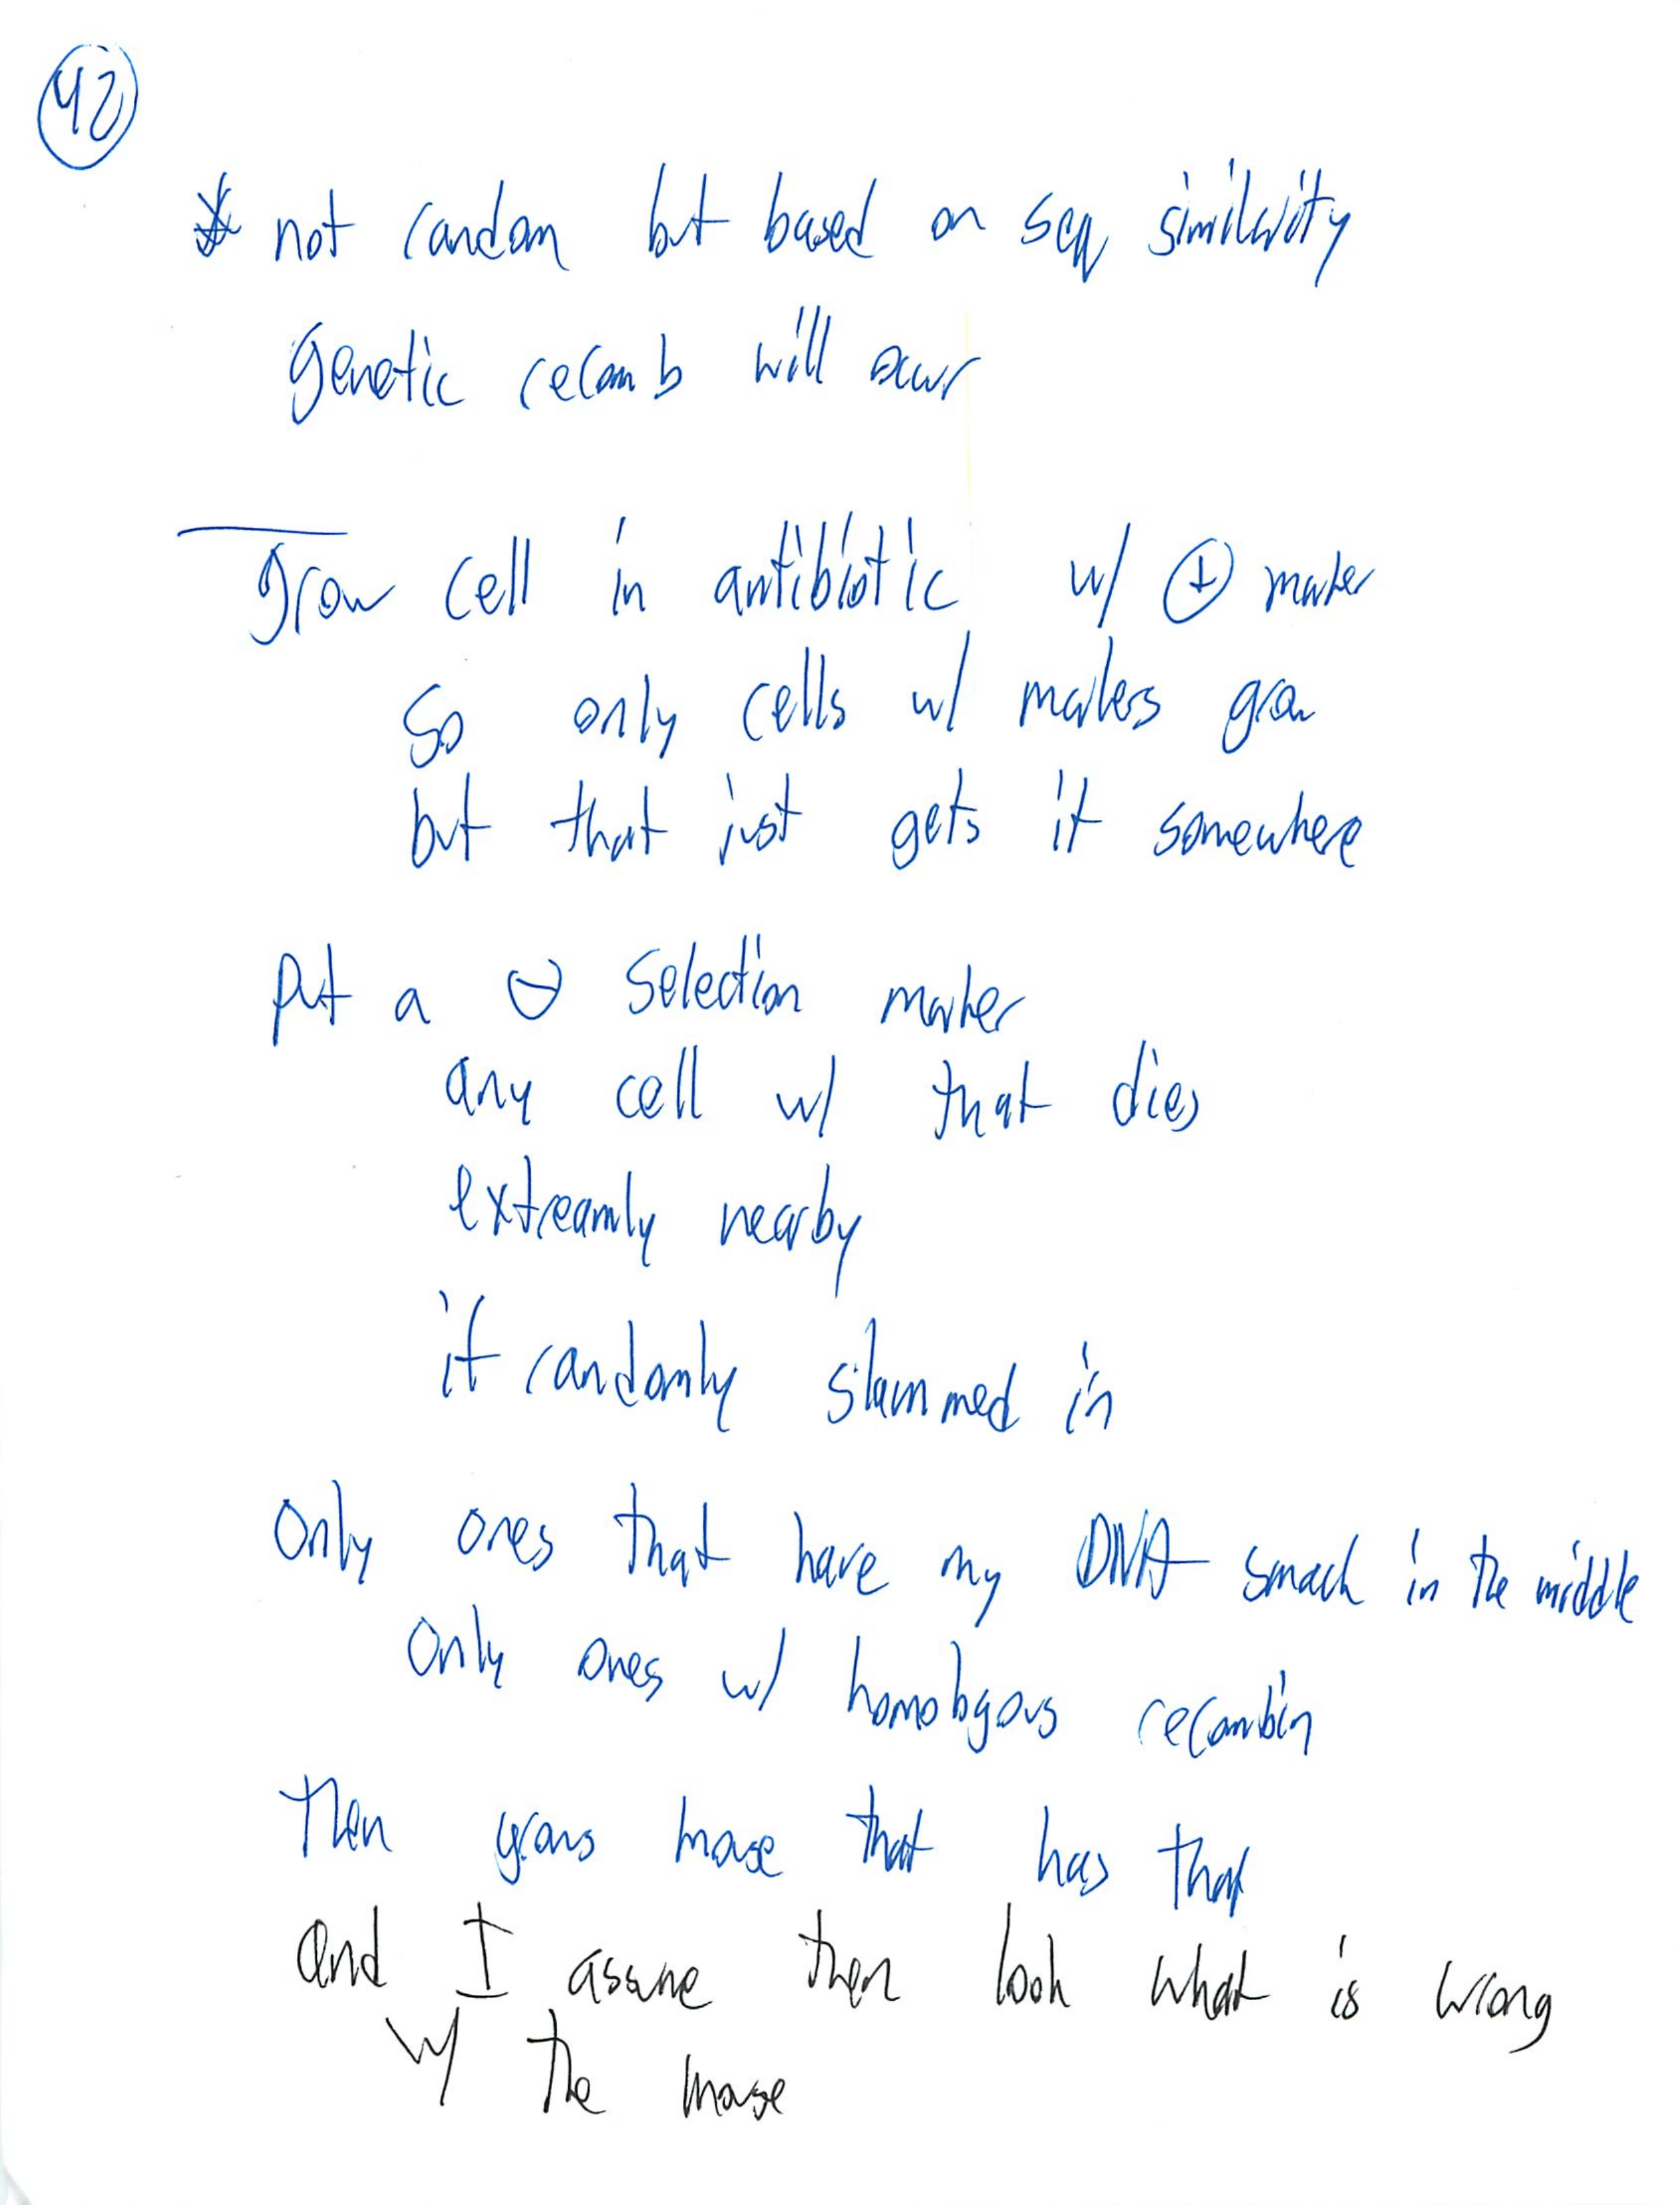 42
* not random but based on seq similarity
genetic recomb will occur
Grow cell in antibiotic w/ ⊕ marker
so only cells w/ markers grow
but that just gets it somewhere
Put a ⊖ selection marker
any cell w/ that dies
extreamly nearby
if randomly slammed in
Only ones that have my DNA smack in the middle
Only ones w/ homologous recombin
Then grows mouse that has that
and I assume then look what is wrong
w/ the mouse